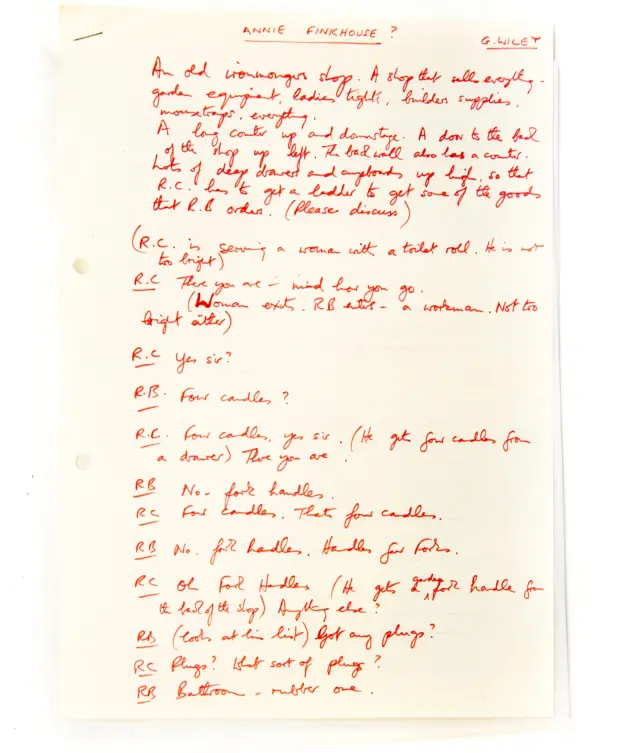 ANNIE FINKHOUSE ?
G. WILEY
An old ironmongers shop. A shop that sells everything -
garden equipment, ladies tights, builders supplies,
mousetraps, everything.
A long counter up and downstage. A door to the back
of the shop up left. The back wall also has a counter.
Lots of deep drawers and cupboards up high, so that
R.C. has to get a ladder to get some of the goods
that R.B orders. (Please discuss)
(R.C. is serving a woman with a toilet roll. He is not
too bright)
R.C There you are - mind how you go.
(Woman exits. RB enters - a workman. Not too
bright either)
R.C Yes sir?
R.B. Four candles ?
R.C. Four candles, yes sir. (He gets four candles from
a drawer) There you are.
RB No - fork handles.
RC Four candles. That's four candles.
RB No. fork handles. Handles for Forks.
RC Oh Fork Handles (He gets a garden fork handle from
the back of the shop) Anything else ?
RB (looks at his list) Got any plugs?
RC Plugs? What sort of plugs ?
RB Bathroom - rubber one.